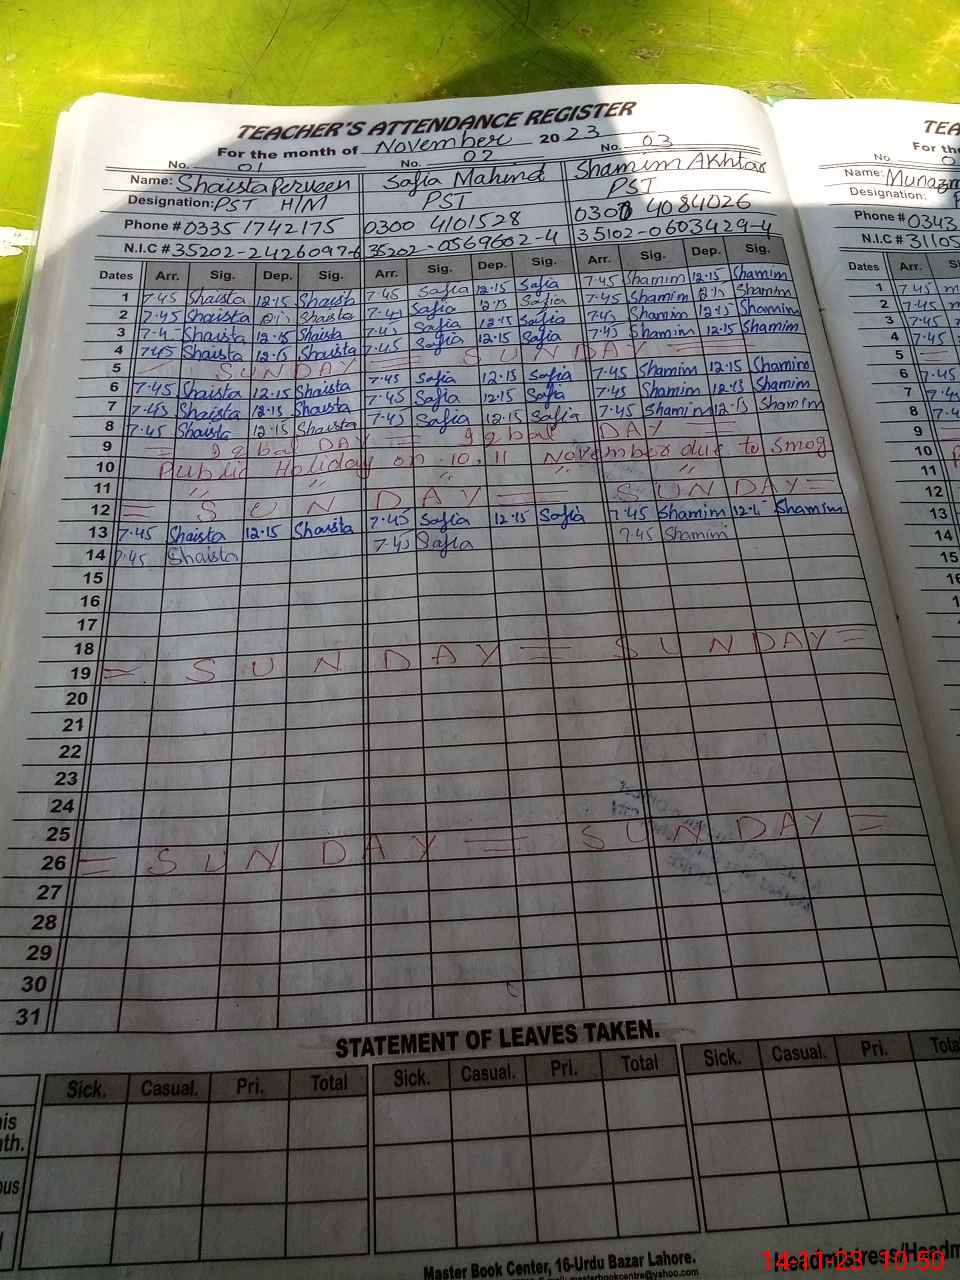 TEACHER'S ATTENDANCE REGISTER
For the month of November 2023
No. 01 No. 02 No. 03
Name: Shaista Perveen Safia Mahind Shamim Akhtar
Designation: PST H/M PST PST
Phone # 0335 1742175 0300 4101528 0300 4084026
N.I.C # 35202-2426097-6 35202-0569602-4 35102-0603429-4
Dates Arr. Sig. Dep. Sig. Arr. Sig. Dep. Sig. Arr. Sig. Dep. Sig.
1 7.45 Shaista 12.15 Shaista 7.45 Safia 12.15 Safia 7.45 Shamim 12.15 Shamim
2 7.45 Shaista Shaista 7.45 Safia 12.15 Safia 7.45 Shamim Shamim
3 7.4 Shaista 12.15 Shaista 7.45 Safia 12.15 Safia 7.45 Shamim 12.15 Shamim
4 7.45 Shaista 12.15 Shaista 7.45 Safia 12.15 Safia 7.45 Shamim 12.15 Shamim
5 SUNDAY = SUNDAY =
6 7.45 Shaista 12.15 Shaista 7.45 Safia 12.15 Safia 7.45 Shamim 12.15 Shamim
7 7.45 Shaista 12.15 Shaista 7.45 Safia 12.15 Safia 7.45 Shamim 12.15 Shamim
8 7.45 Shaista 12.15 Shaista 7.45 Safia 12.15 Safia 7.45 Shamim 12.15 Shamim
9 = Iqbal DAY = Iqbal DAY =
10 Public Holiday on 10,11 November due to Smog
11 " " " " "
12 = SUNDAY = SUNDAY =
13 7.45 Shaista 12.15 Shaista 7.45 Safia 12.15 Safia 7.45 Shamim 12.1 Shamim
14 7.45 Shaista 7.45 Safia 7.45 Shamim
15
16
17
18
19 = SUNDAY = SUNDAY =
20
21
22
23
24
25
26 = SUNDAY = SUNDAY =
27
28
29
30
31
STATEMENT OF LEAVES TAKEN.
Sick. Casual. Pri. Total Sick. Casual. Pri. Total Sick. Casual. Pri. Total
Master Book Center, 16-Urdu Bazar Lahore.
masterbookcentre@yahoo.com
Headmistress/Headm
14-11-23 10:50
TEA
For the
No.
Name: Munazm
Designation:
Phone # 0343
N.I.C # 31105
Dates Arr.
1 7.45
2 7.45
3 7.45
4 7.45
5 =
6 7.45
7 7.45
8 7.4
9 =
10
11
12
13
14
15